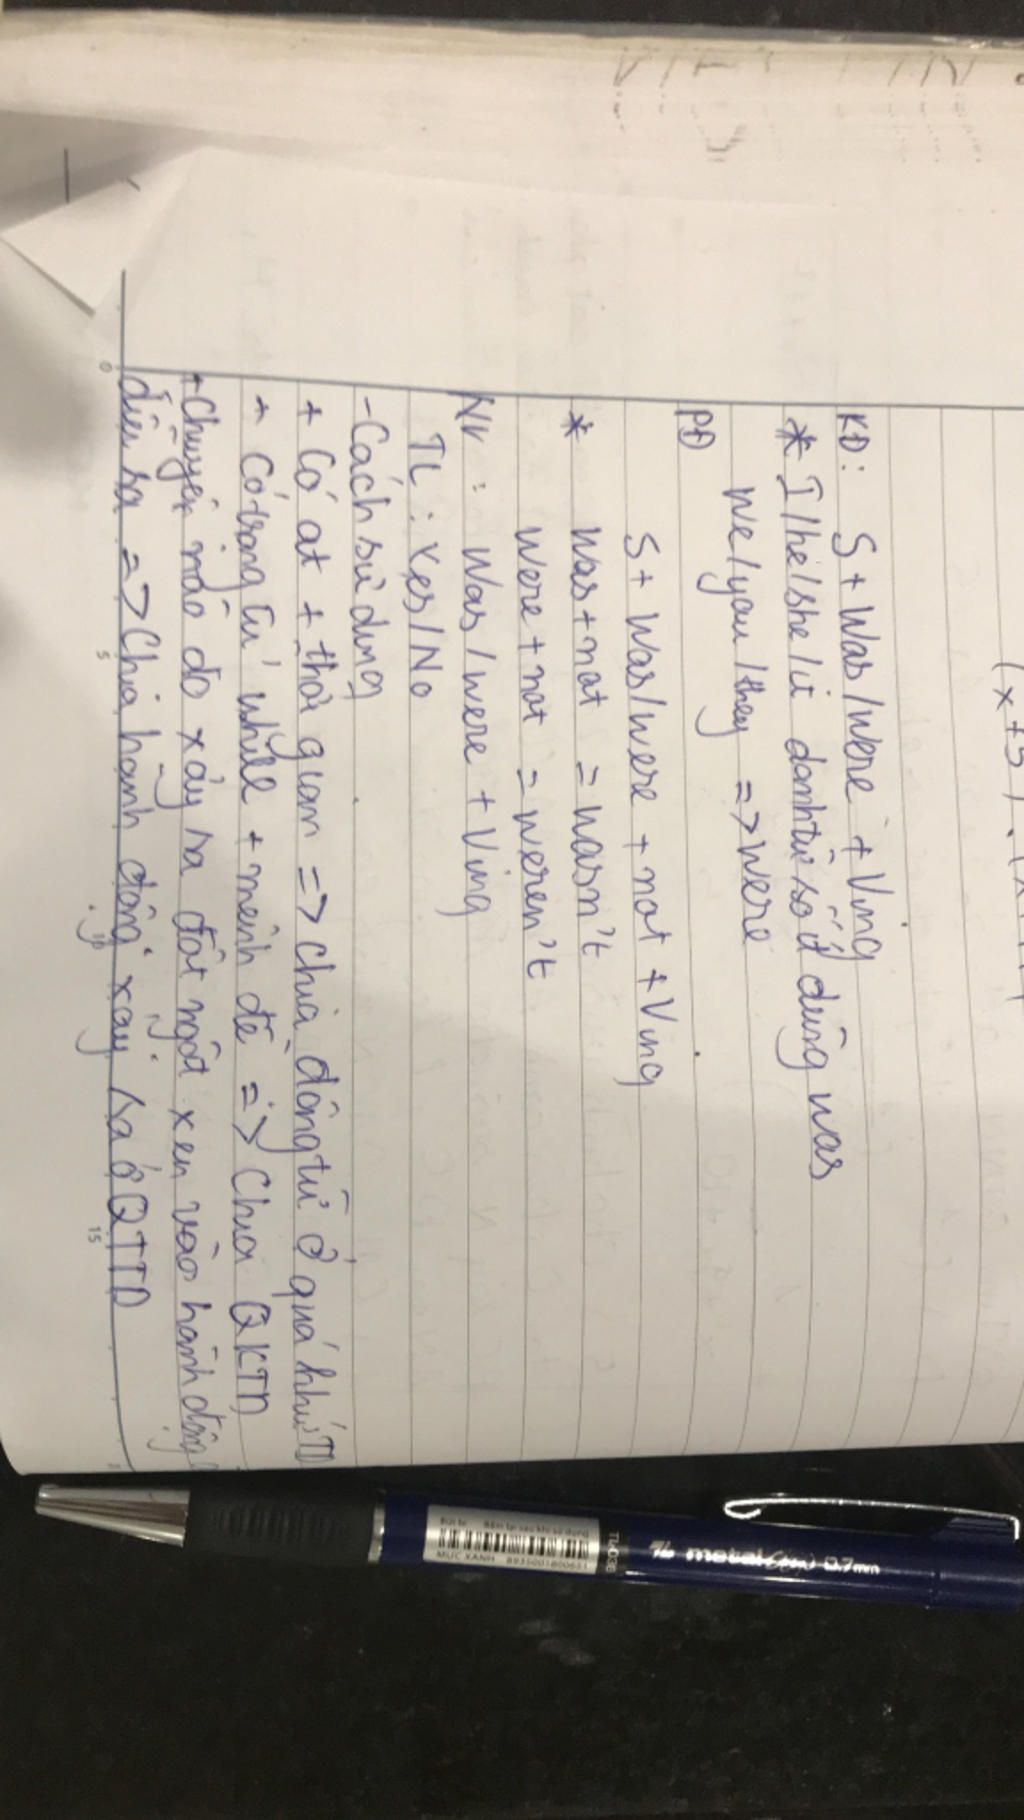 KĐ: S + Was/were + Ving
* I/he/she/it danh từ số ít dùng was
We/you/they => were
PĐ
S + Was/were + not + Ving
* was + not = wasn't
were + not = weren't
NV: Was/were + Ving
TL: Yes/No
- Cách sử dụng
+ Có at + thời gian => chia động từ ở quá khứ TD
+ Có trạng từ while + mệnh đề => Chia QKTD
+ Chuyện nào đó xảy ra đột ngột xen vào hành động
diễn ra => Chia hành động xảy ra ở QTTD
(x+5).(x+
TL-036 metal 0.7mm
Bút bi Bấm lại sau khi sử dụng
MỰC XANH 8935001800651
0 5 10 15